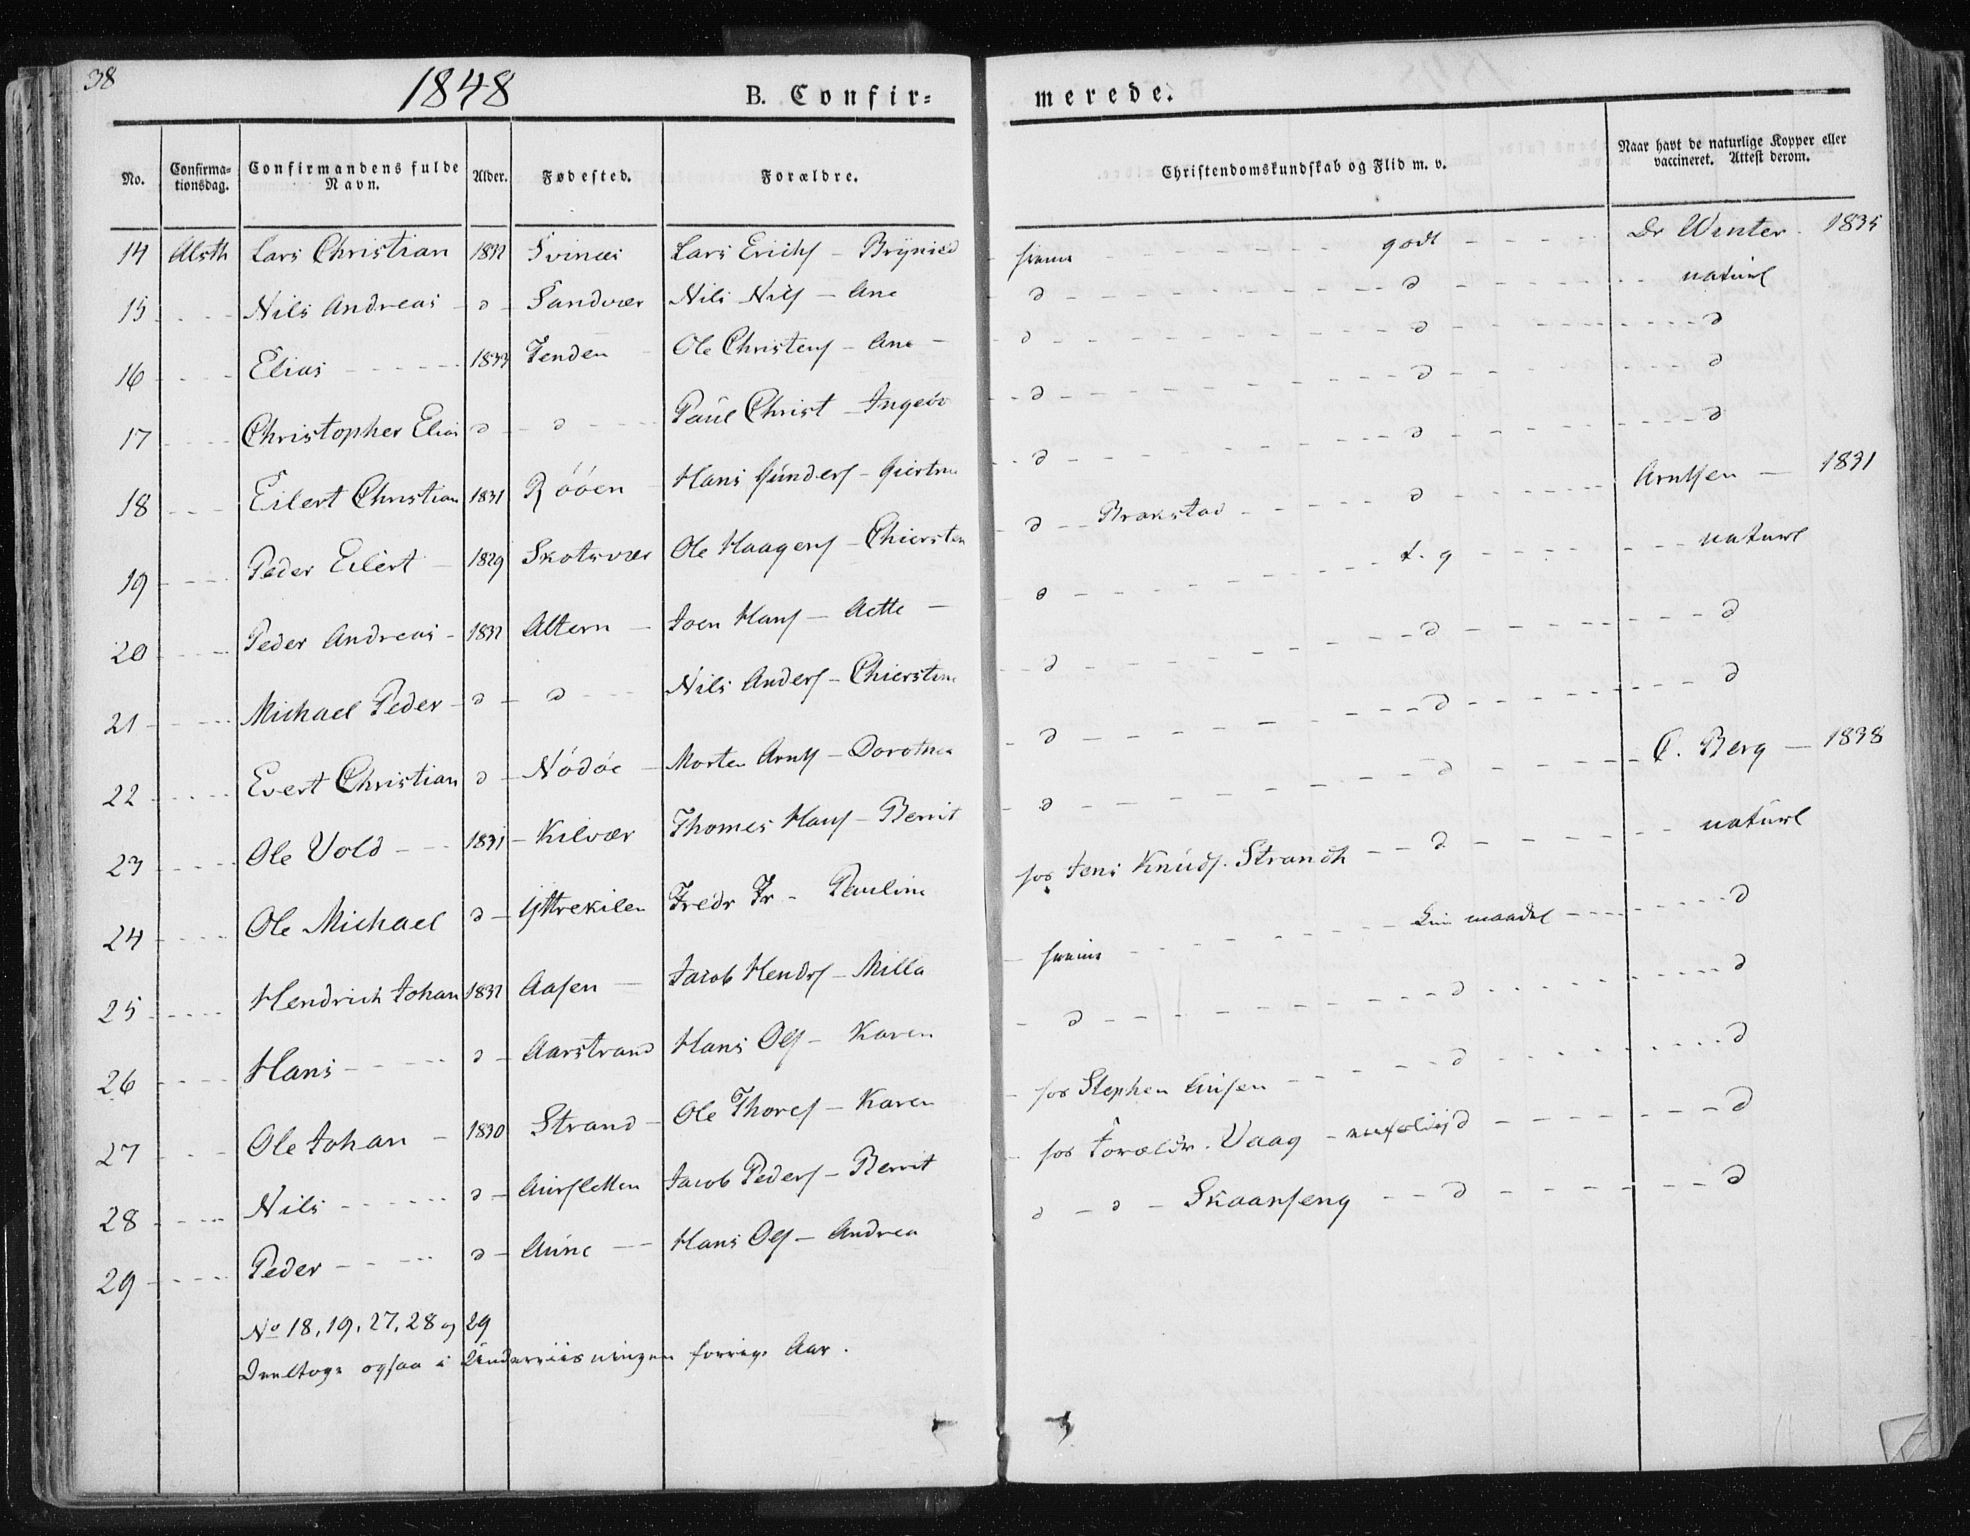 38
1848
B. Confir=
merede.
No. Confirma-tionsdag. Confirmandens fulde Navn. Alder. Fødested. Forældre. Christendomskundskab og Flid m. v. Naar havt de naturlige Kopper eller vaccineret. Attest derom.
14 Alsth Lars Christian 1832 Svinæs Lars Erichs - - godt - Dr Winter 1835
15 - Nils Andreas - d - Sandvær Nils Nils - Ane - d - d - naturl
16 - Elias - 1833 Tenden - Ole Christens - Ane - d - d - d
17 - Christopher Elias d - d - Paul Christ - Ingeb - d - d - d
18 - Eilert Christian 1831 Røøen - Hans Gunders - d - d - d
19 - Peder Eilert - 1829 Skotsvær Ole Haagens - Chiersten - d - Brakstad - d - Arntsen - 1831
20 - Peder Andreas - 1832 Altern - Joen Hans - Aette - d - t. g - naturl
21 - Michael Peder - d - d - Nils Anders - Chierstine - d - d - d
22 - Evert Christian d - Nödöe - Morten Arnts - Dorothea - d - d - d
23 - Ole Vold - 1831 - Kilvær Thomes Hans - Berrit - d - d - C. Berg - 1838
24 - Ole Michael d - Yttrekilen Fredr Fr - Pauline hos Jens Knuds. Strandh - d - naturl
25 - Hendrich Johan 1832 Aasen - Jacob Hendrs - Milla - - maadel - d
26 - Hans - d - Aarstrand Hans Ols - Karen - d - d - d
27 - Ole Johan - 1830 Strand - Ole Thores - Karen - hos Stephen - d - d
28 - Nils - d - Aursletten Jacob Peders - Berrit - hos Forældr. Vaag - d - d
29 - Peder - d - Aune - Hans Ols - Andrea d - d - Skaanseng - d - d
No 18, 19, 27, 28 og 29
Deeltoge ogsaa i Underviisningen forrige Aar.